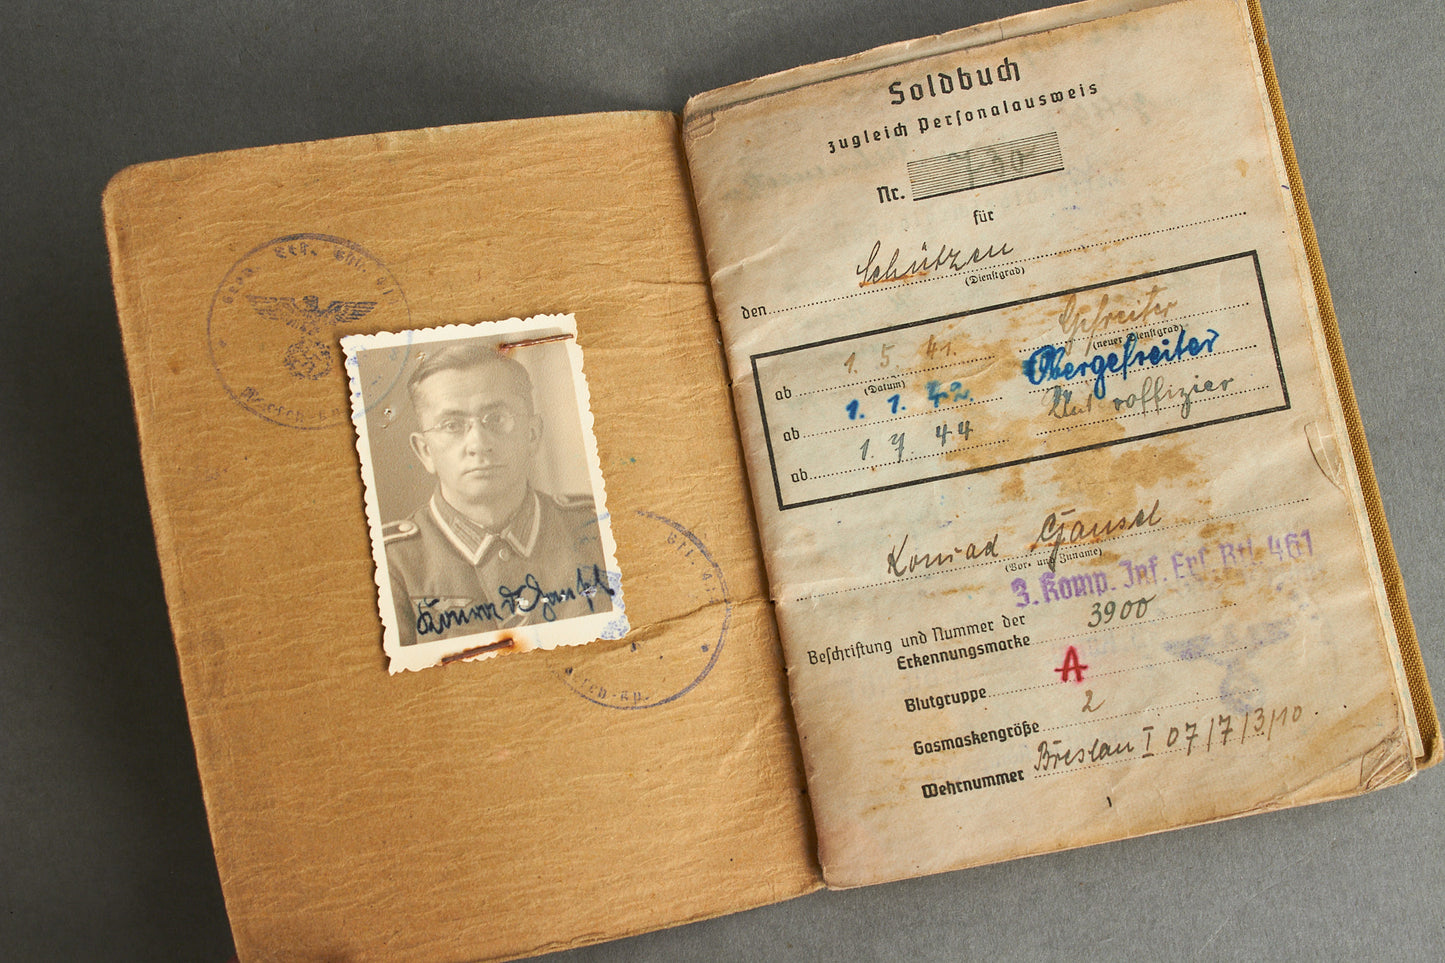 Konrad Gansel
Soldbuch
zugleich Personalausweis
Nr. 700
für
den Schützen
(Dienstgrad)
ab 1. 5. 41. Gefreiter
(Datum) (neuer Dienstgrad)
ab 1. 1. 42. Obergefreiter
ab 1. 7. 44 Unteroffizier
Konrad Gansel
(Vor- und Zuname)
3. Komp. Inf. Ers. Btl. 461
Beschriftung und Nummer der
Erkennungsmarke 3900
Blutgruppe A
Gasmaskengröße 2
Wehrnummer Breslau I 07/7/3/10.
1